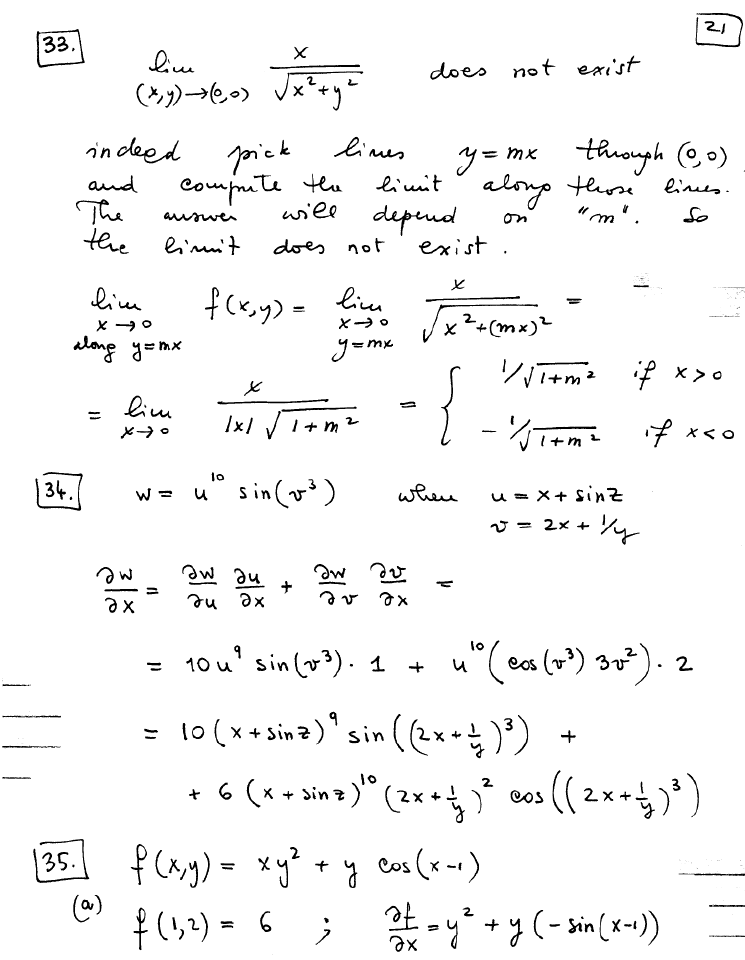 21
33. lim (x,y)→(0,0) x/√(x²+y²) does not exist
indeed pick lines y=mx through (0,0)
and compute the limit along those lines.
The answer will depend on "m". So
the limit does not exist.
lim x→0 along y=mx f(x,y) = lim x→0 y=mx x/√(x²+(mx)²) =
= lim x→0 x/(|x|√(1+m²)) = { 1/√(1+m²) if x>0
-1/√(1+m²) if x<0
34. w = u¹⁰ sin(v³) when u = x + sinz
v = 2x + 1/y
∂w/∂x = ∂w/∂u ∂u/∂x + ∂w/∂v ∂v/∂x =
= 10u⁹ sin(v³)·1 + u¹⁰(cos(v³) 3v²)·2
= 10(x+sinz)⁹ sin((2x+1/y)³) +
+ 6(x+sinz)¹⁰ (2x+1/y)² cos((2x+1/y)³)
35. f(x,y) = xy² + y cos(x-1)
(a) f(1,2) = 6 ; ∂f/∂x = y² + y(-sin(x-1))